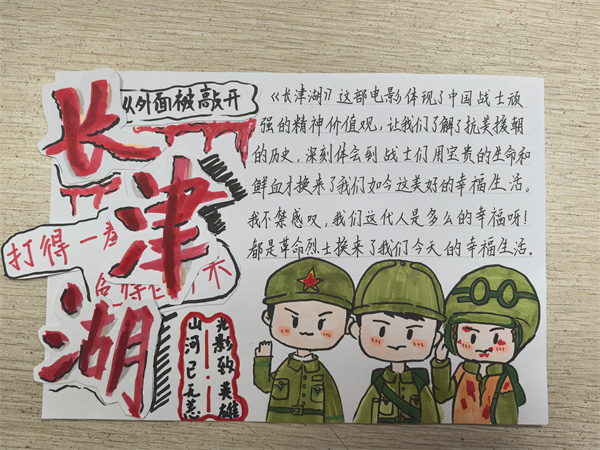 长津湖
从外面被敲开
《长津湖》这部电影体现了中国战士顽
强的精神价值观,让我们了解了抗美援朝
的历史,深刻体会到战士们用宝贵的生命和
鲜血才换来了我们如今这美好的幸福生活。
我不禁感叹,我们这代人是多么的幸福呀!
都是革命烈士换来了我们今天的幸福生活。
打得一
光影致英雄
山河已无恙